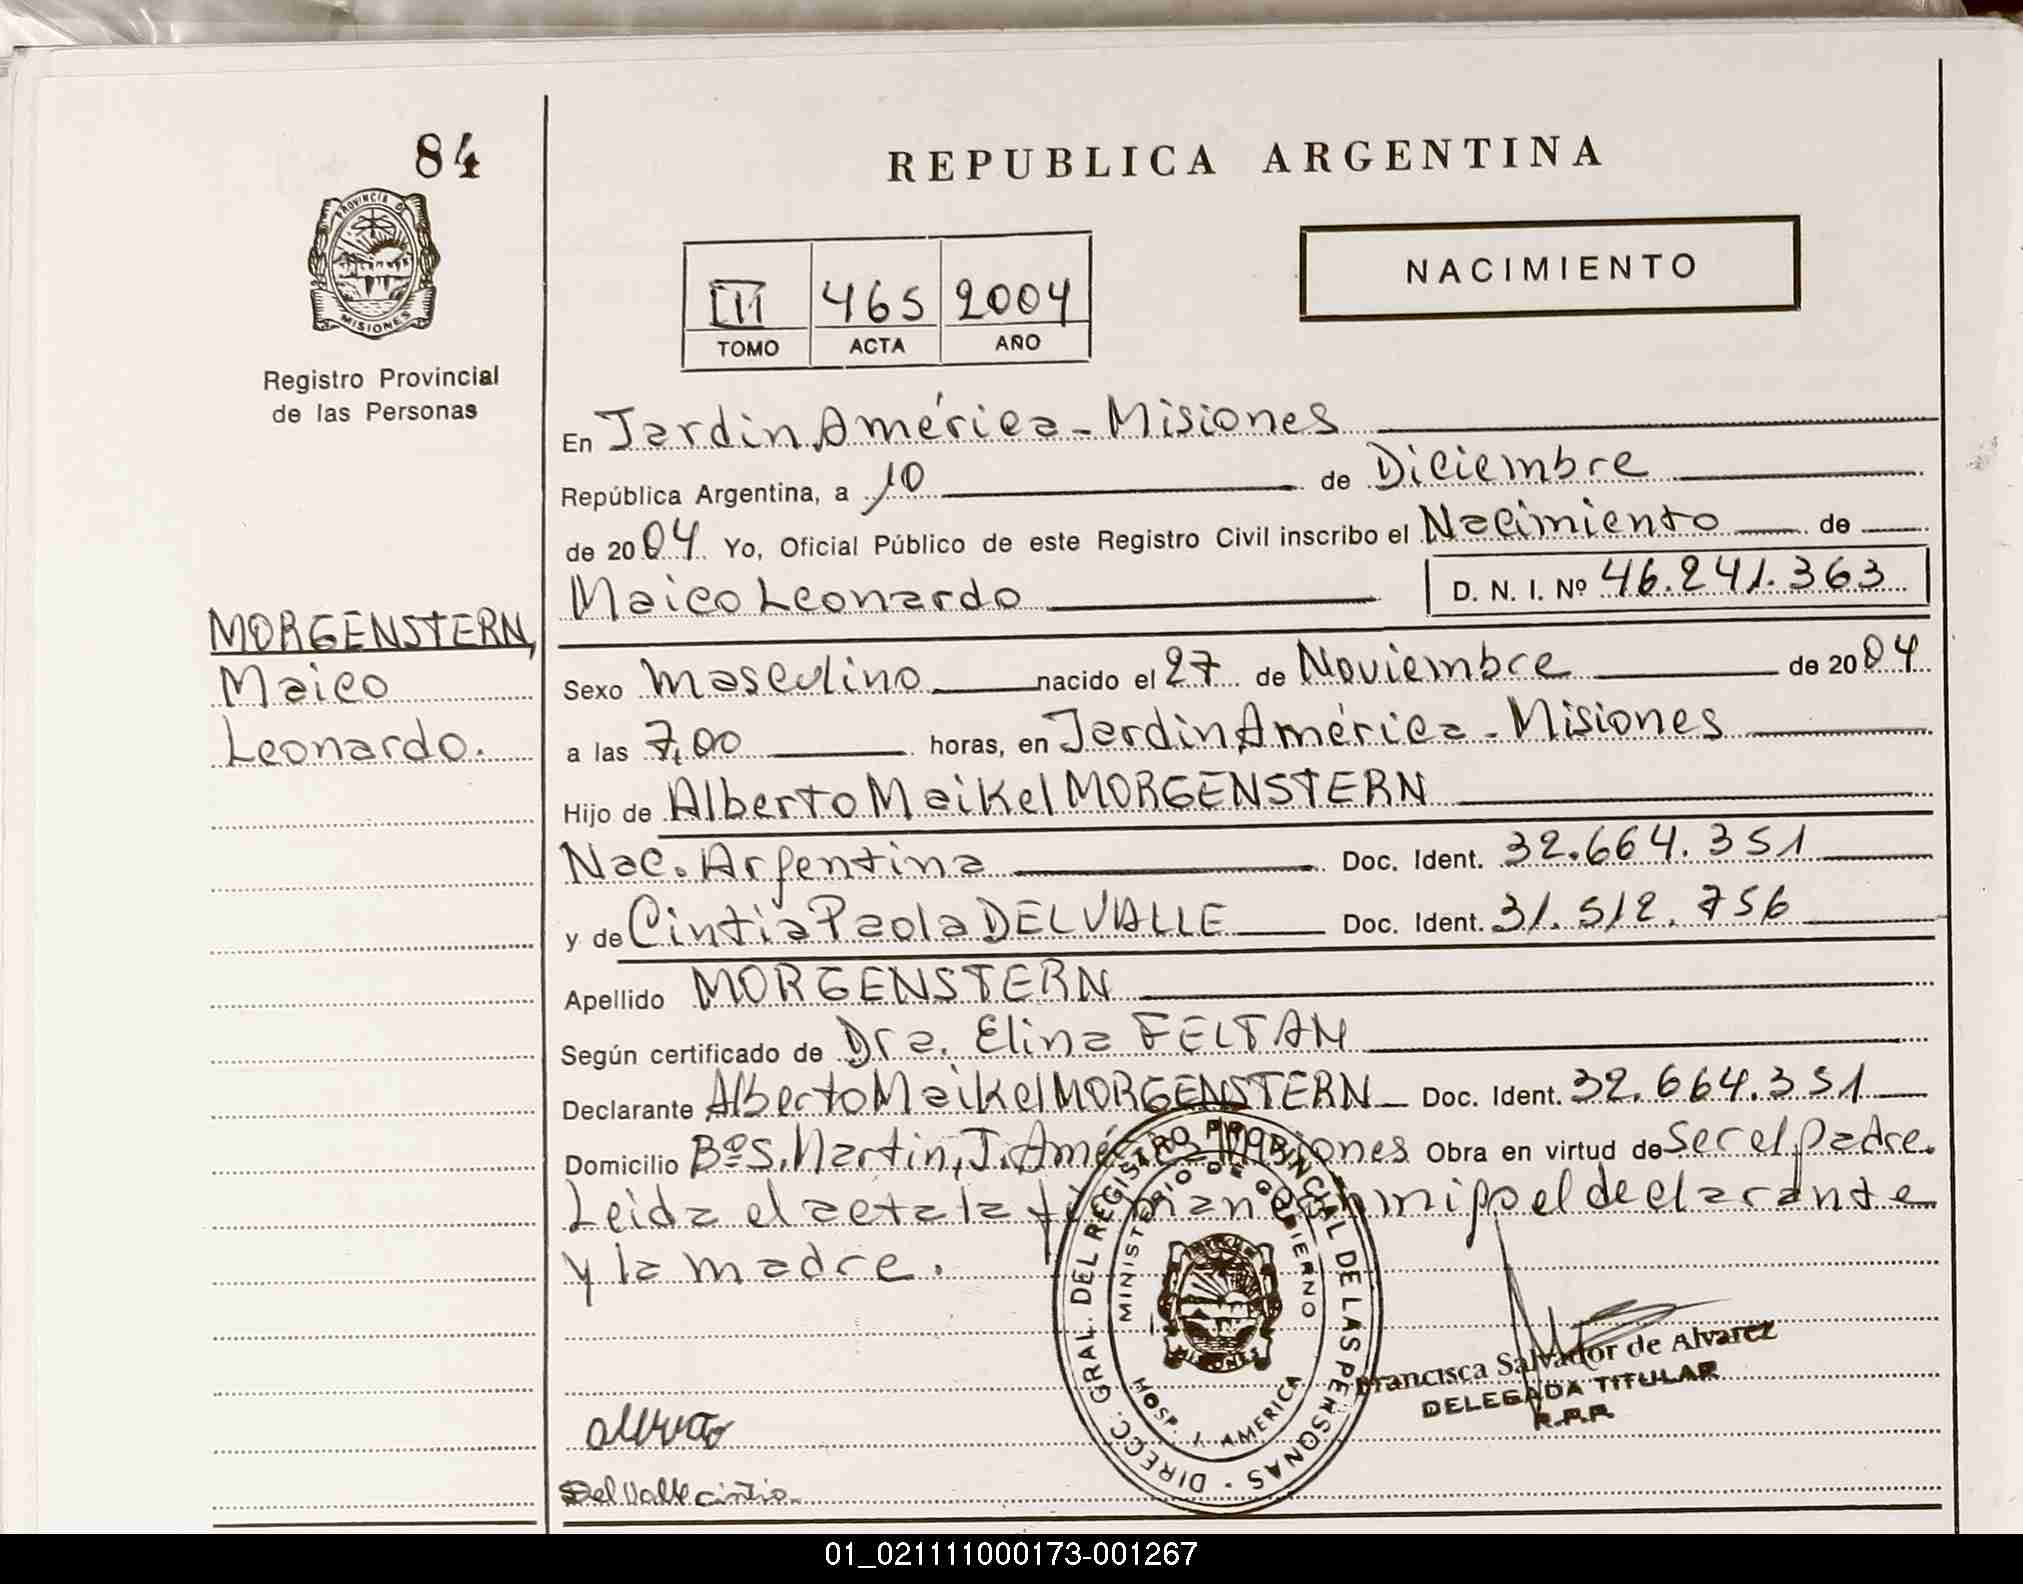 84
PROVINCIA D
MISIONES
Registro Provincial
de las Personas
MORGENSTERN,
Maico
Leonardo.
REPUBLICA ARGENTINA
III 465 2004
TOMO ACTA AÑO
NACIMIENTO
En Jardin América - Misiones
República Argentina, a 10 de Diciembre
de 2004 Yo, Oficial Público de este Registro Civil inscribo el Nacimiento de
Maico Leonardo D. N. I. Nº 46.241.363
Sexo Masculino nacido el 27 de Noviembre de 2004
a las 7,00 horas, en Jardin América - Misiones
Hijo de Alberto Maikel MORGENSTERN
Nac. Argentina Doc. Ident. 32.664.351
y de Cintia Paola DEL VALLE Doc. Ident. 31.512.756
Apellido MORGENSTERN
Según certificado de Dra. Elina FELTAN
Declarante Alberto Maikel MORGENSTERN Doc. Ident. 32.664.351
Domicilio Bº S. Martin, J. América Misiones Obra en virtud de ser el padre.
Leida el acta la firman conmigo el declarante
y la madre.
DIRECC. GRAL. DEL REGISTRO PROVINCIAL DE LAS PERSONAS
MINISTERIO DE GOBIERNO
MISIONES
HOSP. J. AMERICA
Francisca Salvador de Alvarez
DELEGADA TITULAR
R.P.P.
Del Valle Cintia.
01_021111000173-001267